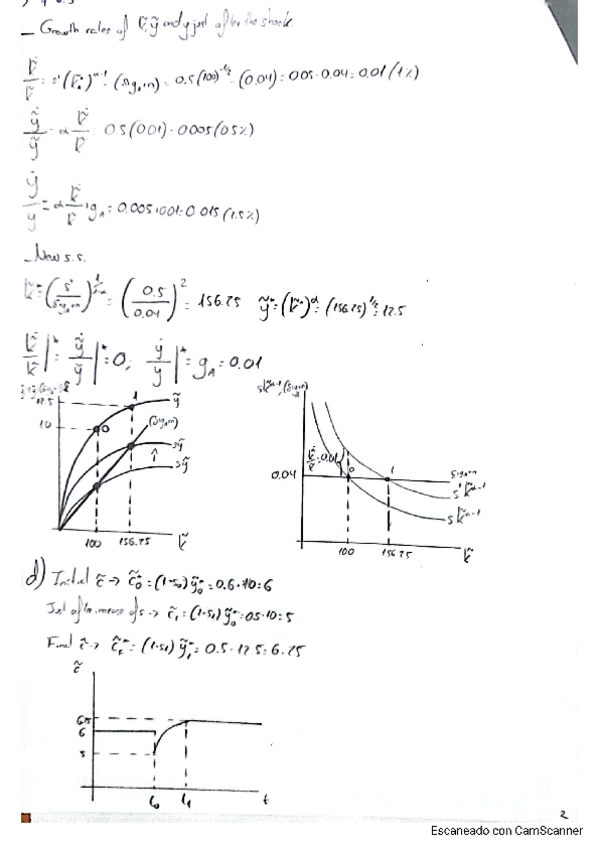 _ Growth rates of k̃, ỹ and y just after the shock
k̃̇/k̃ = s'(k̃*)^α-1 - (δ+g_A+n) = 0.5(100)^-1/2 - (0.04) = 0.05 - 0.04 = 0.01 (1%)
ỹ̇/ỹ = α k̃̇/k̃ = 0.5(0.01) = 0.005 (0.5%)
ẏ/y = α k̃̇/k̃ + g_A = 0.005 + 0.01 = 0.015 (1.5%)
_ New s.s.
k̃* = (s'/δ+g_A+n)^1/1-α = (0.5/0.04)^2 = 156.25 ỹ* = (k̃*)^α = (156.25)^1/2 = 12.5
k̃̇/k̃|* = ỹ̇/ỹ|* = 0; ẏ/y|* = g_A = 0.01
12.5
10
0
1
ỹ
(δ+g_A+n)
s'ỹ
sỹ
100
156.25
k̃
sk̃^α-1, (δ+g_A+n)
k̃̇/k̃ = 0.01
0.04
0
1
δ+g_A+n
s'k̃^α-1
sk̃^α-1
100
156.25
k̃
d) Initial c̃ → c̃₀* = (1-s₀) ỹ₀* = 0.6·10 = 6
Just after increase of s → c̃₁ = (1-s₁) ỹ₀* = 0.5·10 = 5
Final c̃ → c̃₁* = (1-s₁) ỹ₁* = 0.5·12.5 = 6.25
c̃
6.25
6
5
t₀
t₁
t
2
Escaneado con CamScanner